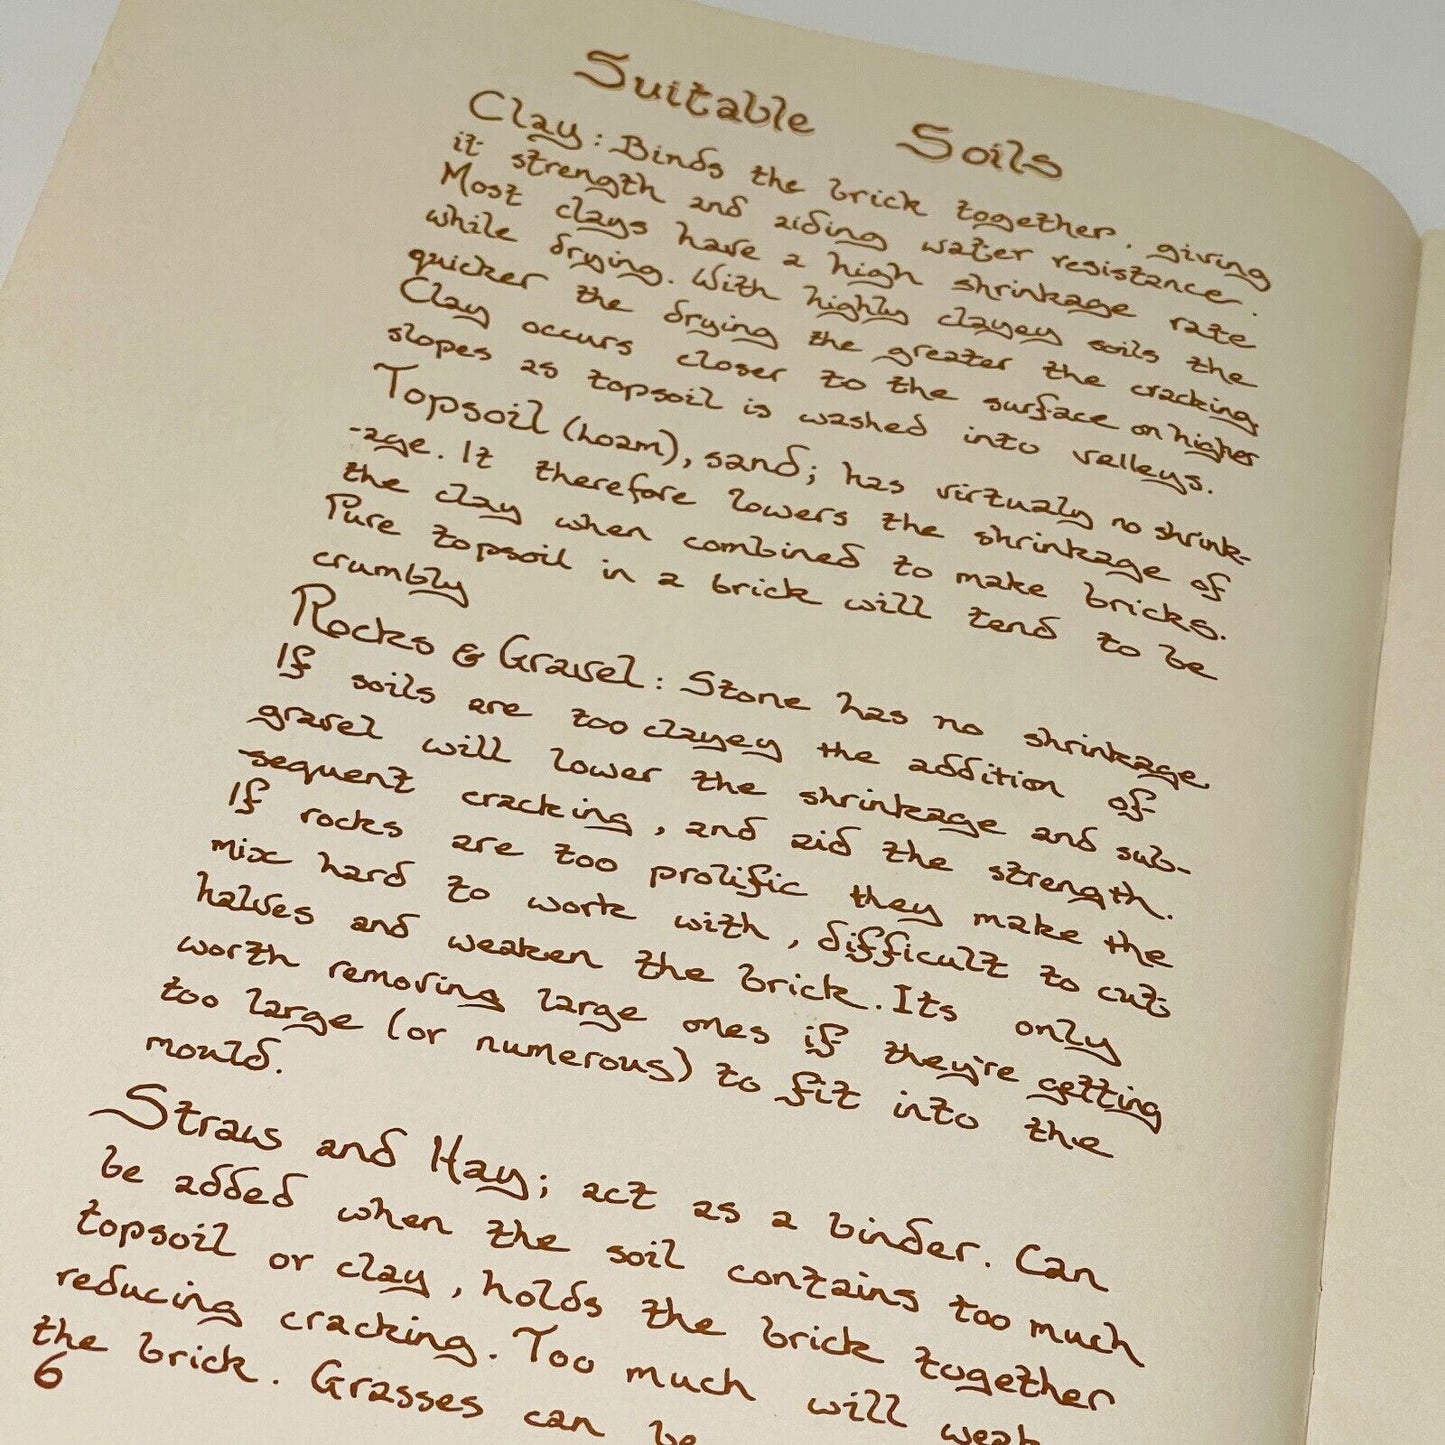 Suitable Soils
Clay: Binds the brick together, giving
it strength and aiding water resistance.
Most clays have a high shrinkage rate
while drying. With highly clayey soils the
quicker the drying the greater the cracking
Clay occurs closer to the surface on higher
slopes as topsoil is washed into valleys.
Topsoil (Loam), sand; has virtualy no shrink-
-age. It therefore lowers the shrinkage of
the clay when combined to make bricks.
Pure topsoil in a brick will tend to be
crumbly
Rocks & Gravel: Stone has no shrinkage.
If soils are too clayey the addition of
gravel will lower the shrinkage and sub-
-sequent cracking, and aid the strength.
If rocks are too prolific they make the
mix hard to work with, difficult to cut
halves and weaken the brick. Its only
worth removing large ones if they're getting
too large (or numerous) to fit into the
mould.
Straws and Hay; act as a binder. Can
be added when the soil contains too much
topsoil or clay, holds the brick together
reducing cracking. Too much will
the brick. Grasses can be
6